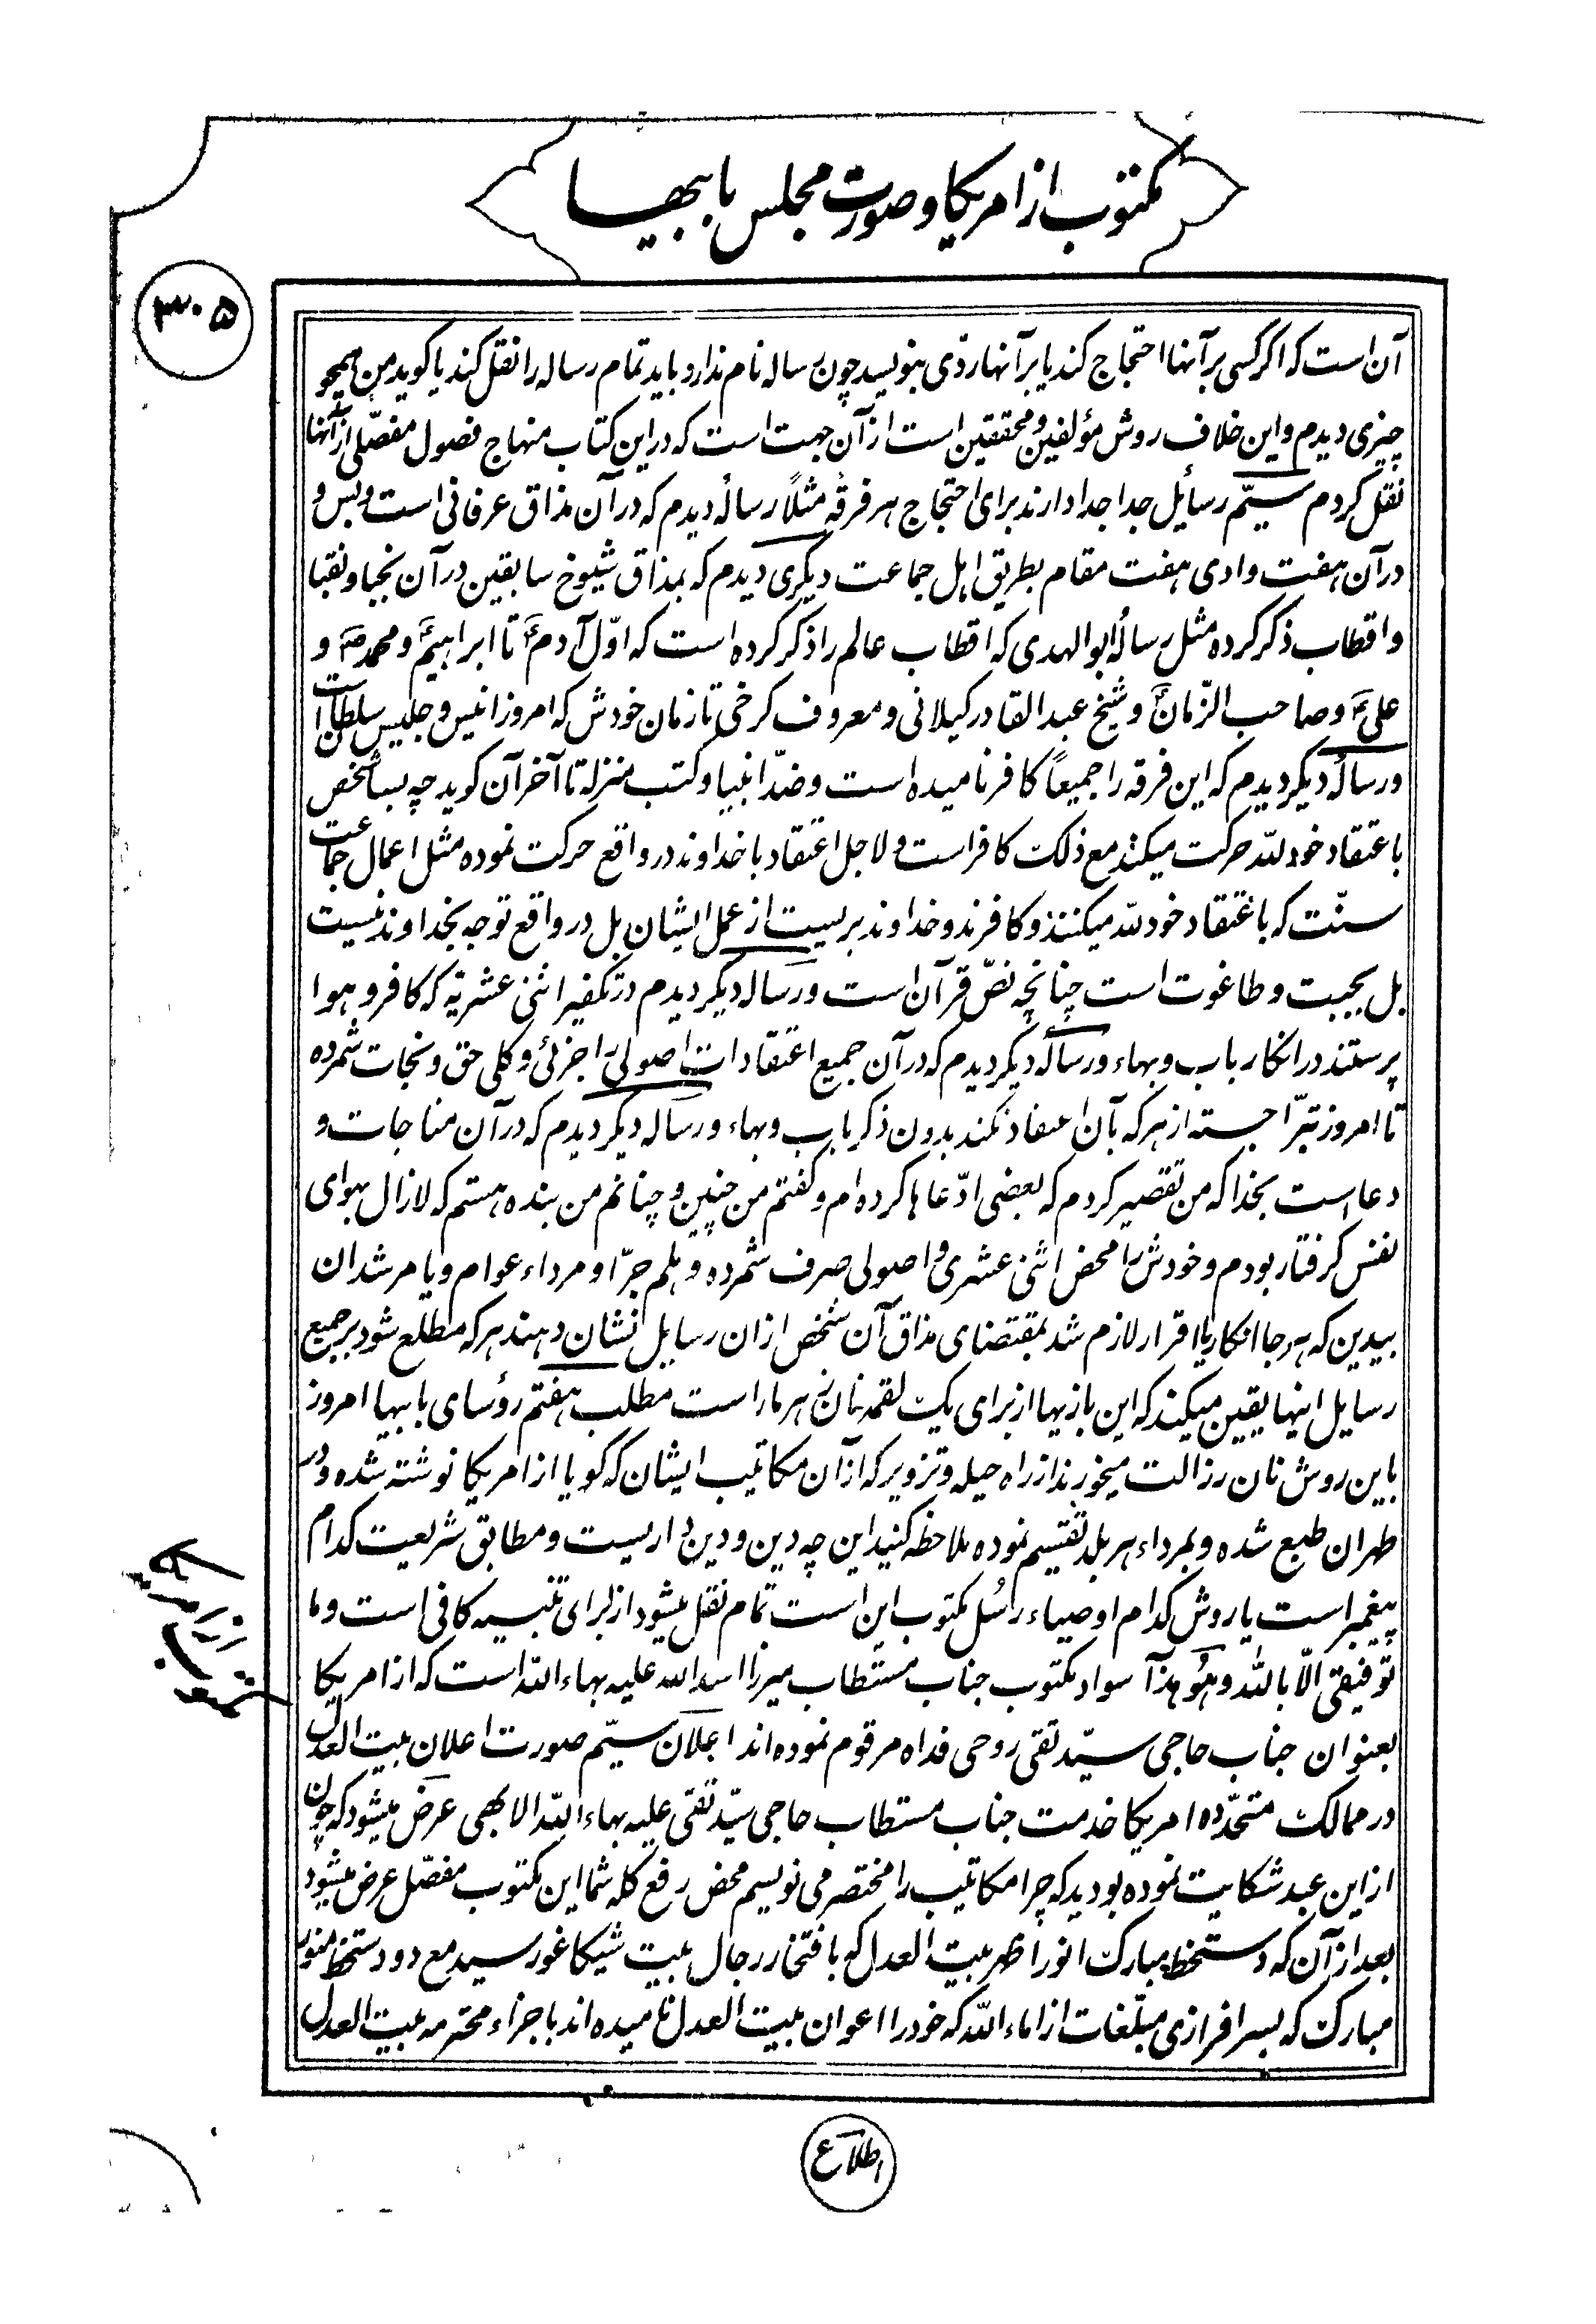 مکتوب از امریکا و صورت مجلس بابیها
۳۰۵
آن است که اگر کسی بر آنها احتجاج کند یا بر آنها ردّی بنویسد چون رساله نام ندارد باید تمام رساله را نقل کند یا گوید من همچو
چیزی دیدم و این خلاف روش مؤلفین و محققین است از آن جهت است که در این کتاب منهاج فصول مفصّلی از آنها
نقل کردم سیّم رسائل جدا جدا دارند برای احتجاج هر فرقهٔ مثلاً رسالهٔ دیدم که در آن مذاق عرفانی است و بس و
در آن هفت وادی هفت مقام بطریق اهل جماعت دیگری دیدم که بمذاق شیوخ سابقین در آن نجبا و نقبا
و اقطاب ذکر کرده مثل رسالهٔ ابوالهدی که اقطاب عالم را ذکر کرده است که اوّل آدمؑ تا ابراهیمؑ و محمدؐ و
علیؑ و صاحب الزّمانؑ و شیخ عبد القادر گیلانی و معروف کرخی تا زمان خودش که امروز انیس و جلیس سلطان است
و رسالهٔ دیگر دیدم که این فرقه را جمیعاً کافر نامیده است و ضدّ انبیا و کتب منزله تا آخر آن گوید چه بسا شخص
باعتقاد خود للّه حرکت میکند مع ذلک کافر است و لاجل اعتقاد با خداوند در واقع حرکت نموده مثل اعمال جماعت
سنّت که باعتقاد خود للّه میکنند و کافرند و خداوند بریست از عمل ایشان بل در واقع توجه بخداوند نیست
بل بجبت و طاغوت است چنانچه نصّ قرآن است و رساله دیگر دیدم در تکفیر اثنی عشریّه که کافر و هوا
پرستند در انکار باب و بهاء و رسالهٔ دیگر دیدم که در آن جمیع اعتقادات اصولی را جزئی و کلی حق و نجات شمرده
تا امروز تبرّا جسته از هر که بآن اعتقاد نکند بدون ذکر باب و بهاء و رساله دیگر دیدم که در آن مناجات و
دعا است بخدا که من تقصیر کردم که بعضی ادّعاها کرده ام و گفتم من چنین و چنانم من بنده هستم که لازال بهوای
نفس گرفتار بودم و خودش را محض اثنی عشری و اصولی صرف شمرده و هلم جرّا و مرداء عوام و یا مرشدان
بیدین که هر جا انکار یا اقرار لازم شد بمقتضای مذاق آن شخص از ان رسایل نشان دهند هر که مطلع شود بر جمیع
رسایل اینها یقین میکند که این بازیها از برای یک لقمه نان زهر مار است مطلب هفتم رؤسای بابیها امروز
باین روش نان رزالت میخورند از راه حیله و تزویر که از آن مکاتیب ایشان که گویا از امریکا نوشته شده و در
طهران طبع شده و بمرداء هر بلد تقسیم نموده ملاحظه کنید این چه دین و دین داریست و مطابق شریعت کدام
پیغمبر است یا روش کدام اوصیاء رسُل مکتوب این است تمام نقل میشود از برای تنبیه کافی است و ما
توفیقی الّا باللّه و هُو هذا سواد مکتوب جناب مستطاب میرزا اسد الله علیه بهاء اللّه است که از امریکا
بعنوان جناب حاجی سیّد تقی روحی فداه مرقوم نموده اند اعلان سیّم صورت اعلان بیت العدل
در ممالک متحدّه امریکا خدمت جناب مستطاب حاجی سیّد تقی علیه بهاء اللّه الابهی عرض میشود که چون
از این عبد شکایت نموده بودید که چرا مکاتیب را مختصر می نویسم محض رفع گله شما این مکتوب مفصّل عرض میشود
بعد از آن که دستخط مبارک انور اظهر بیت العدل که بافتخار رجال بیت شیکاغو رسید مع دو دستخط منوّر
مبارک که بسرافرازی مبلّغات از اماء اللّه که خود را اعوان بیت العدل نامیده اند با جزاء محترمه بیت العدل
مکتوب از امریکا
اطلاع